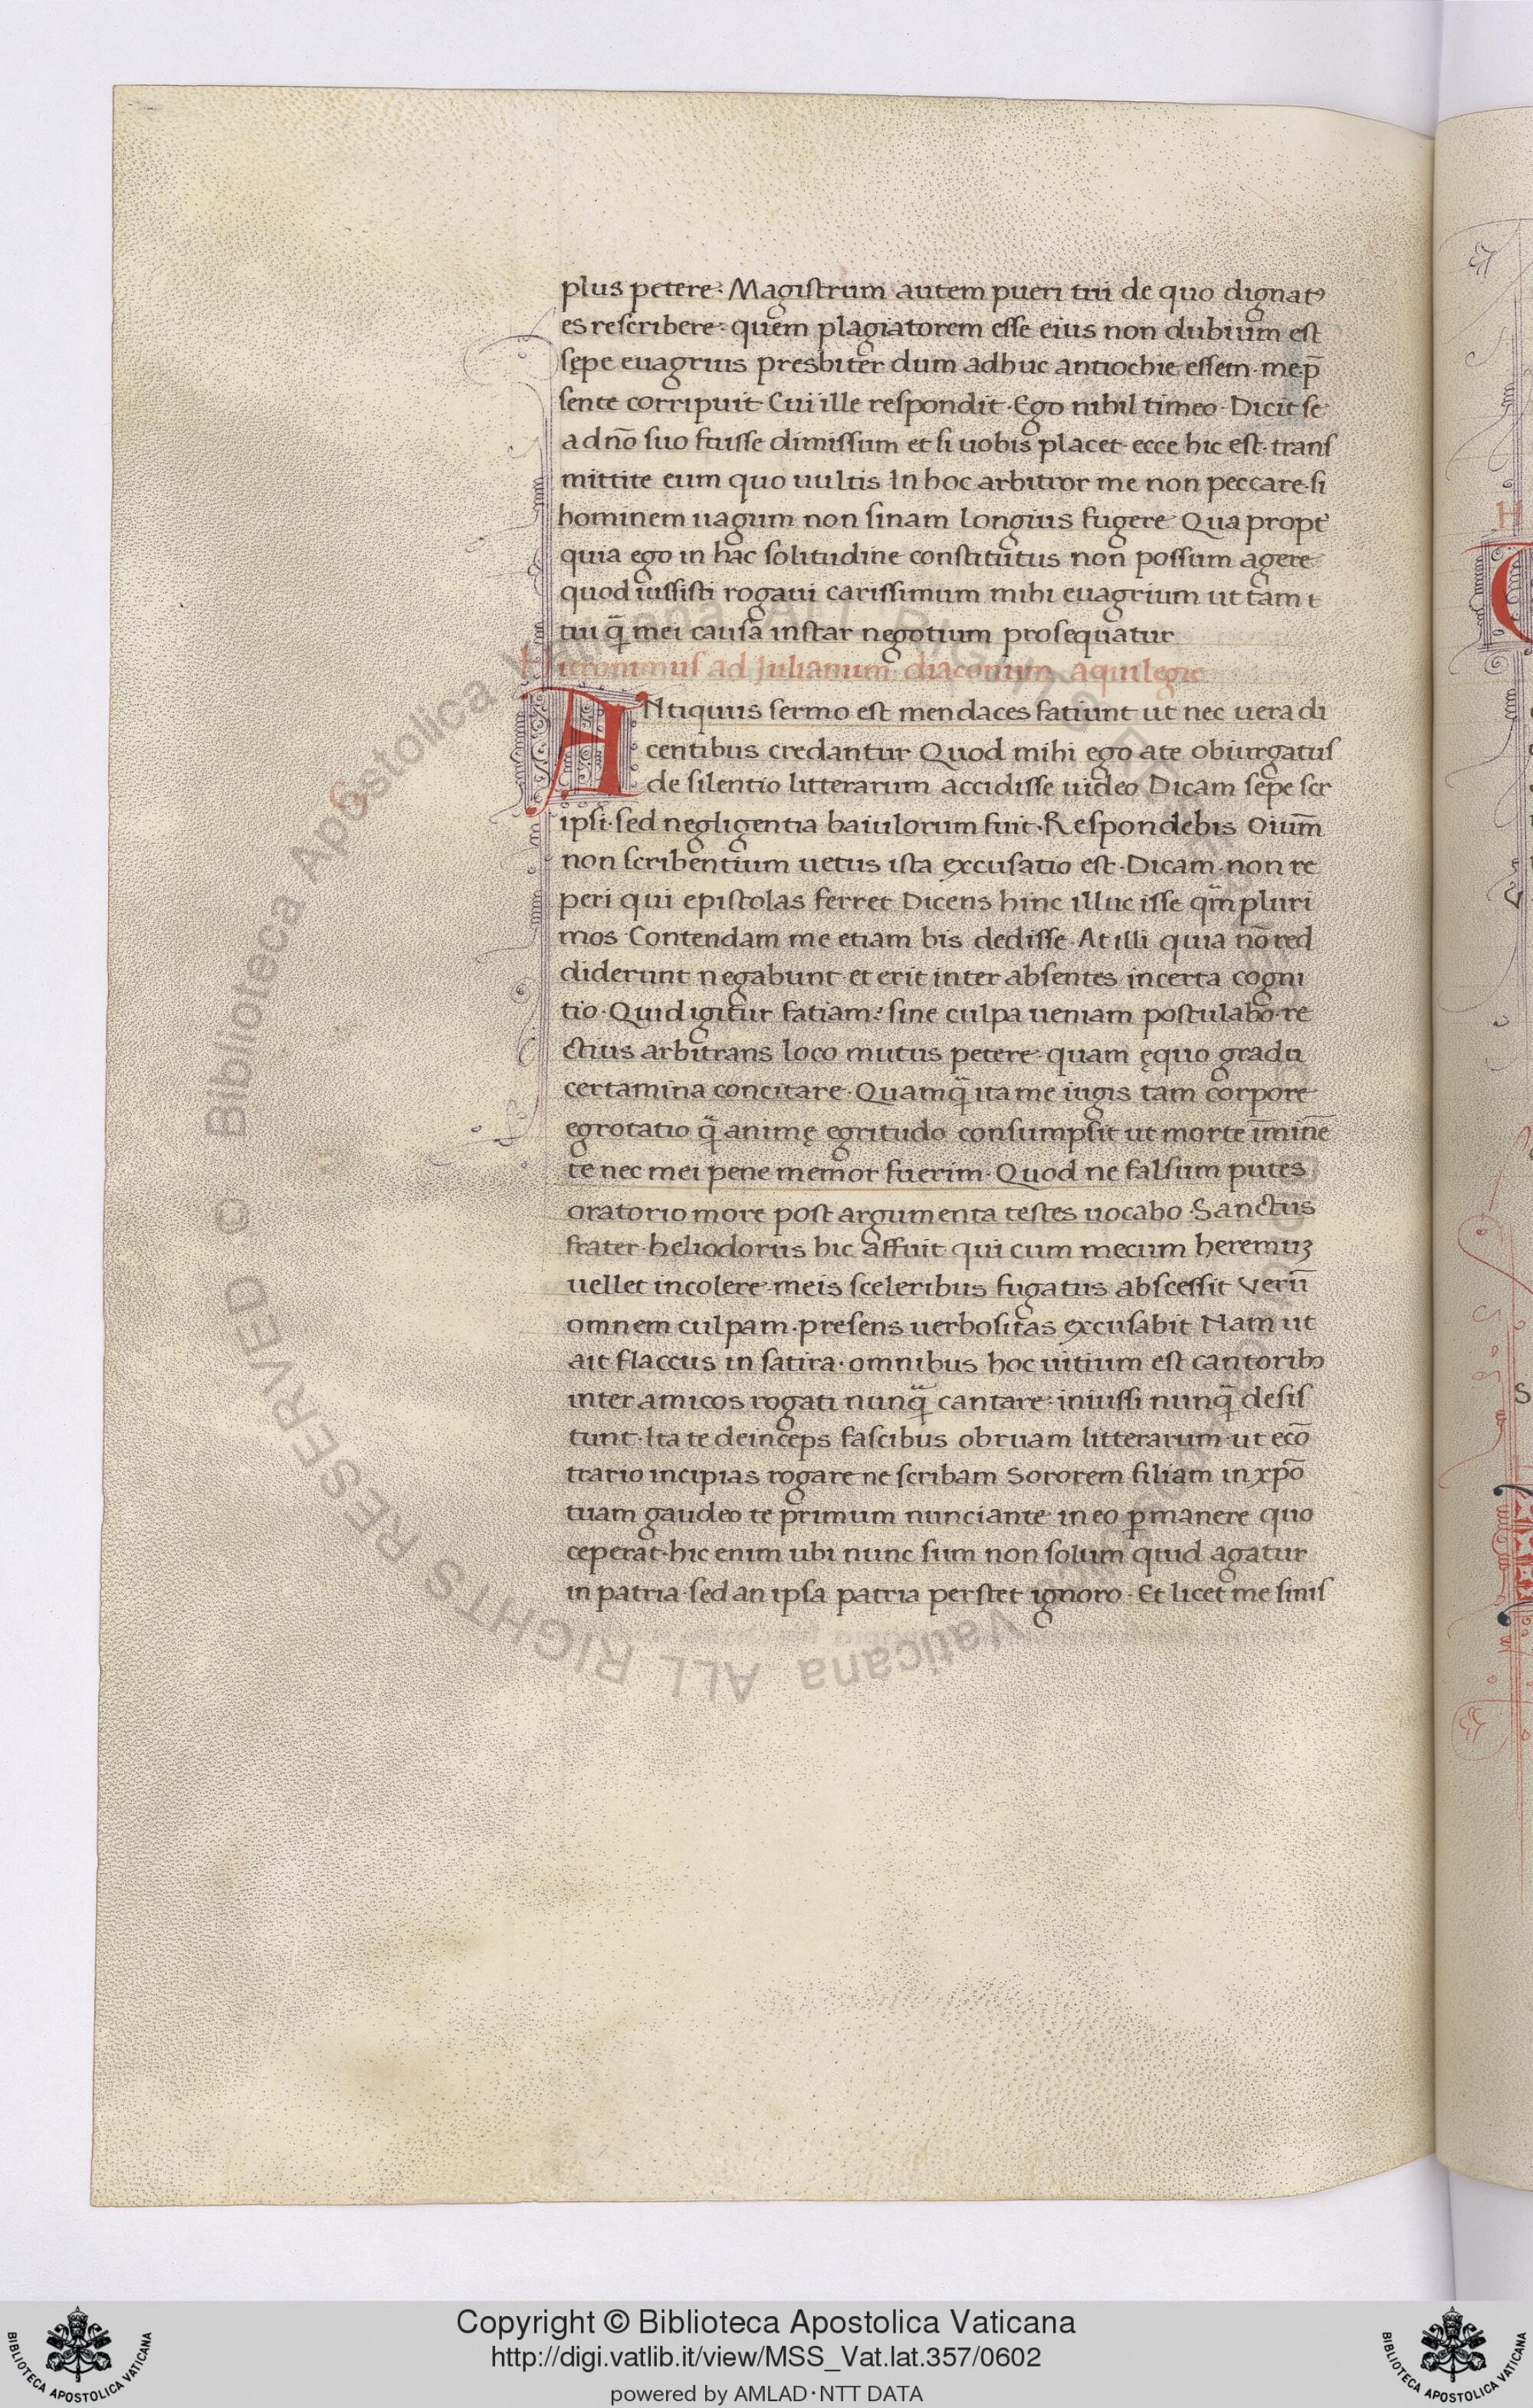 plus petere. Magistrum autem pueri tui de quo dignatꝰ
es rescribere: quem plagiatorem esse eius non dubium est
sępe euagrius presbiter dum adhuc antiochie essem. me p̄
sente corripuit Cui ille respondit. Ego nihil timeo. Dicit se
a dn̄o suo fuisse dimissum et si uobis placet ecce hic est. trans
mittite eum quo uultis In hoc arbitror me non peccare. si
hominem uagum non sinam longius fugere Qua propt̉
quia ego in hac solitudine constitutus non possum agere
quod iussisti rogaui carissimum mihi euagrium ut tam t
tui q̄ mei causa instar negotium prosequatur
Hieronimus ad Julianum diaconum aquilegie
ANtiquus sermo est mendaces fatiunt ut nec uera di
centibus credantur Quod mihi ego ate obiurgatus
de silentio litterarum accidisse uideo Dicam sepe scr
ipsi. sed negligentia baiulorum fuit. Respondebis Oium̄
non scribentium uetus ista excusatio est. Dicam. non re
peri qui epistolas ferret Dicens hinc illuc isse qm̄ pluri
mos Contendam me etiam bis dedisse. At illi quia nō red
diderunt negabunt et erit inter absentes incerta cogni
tio. Quid igitur fatiam? sine culpa ueniam postulabo. re
ctius arbitrans loco mutus petere quam ęquo gradu
certamina concitare. Quamq̄ ita me iugis tam corpore
egrotatio q̄ animę egritudo consumpsit ut morte īminē
te nec mei pene memor fuerim. Quod ne falsum putes
oratorio more post argumenta testes uocabo. Sanctus
frater heliodorus hic affuit qui cum mecum heremuꝫ
uellet incolere. meis sceleribus fugatus abscessit Verū
omnem culpam. presens uerbositas excusabit Nam ut
ait flaccus in satira. omnibus hoc uitium est cantoribꝫ
inter amicos rogati nunq̄ cantare. iniussi nunq̄ desis
tunt. Ita te deinceps fascibus obruam litterarum ut ecō
trario incipias rogare ne scribam Sororem filiam in xp̄o
tuam gaudeo te primum nunciante in eo ꝑmanere quo
ceperat. hic enim ubi nunc sum non solum quid agatur
in patria sed an ipsa patria perstet ignoro. Et licet me sinis
© Biblioteca Apostolica Vaticana ALL RIGHTS RESERVED
Copyright © Biblioteca Apostolica Vaticana
http://digi.vatlib.it/view/MSS_Vat.lat.357/0602
powered by AMLAD·NTT DATA
BIBLIOTECA APOSTOLICA VATICANA
BIBLIOTECA APOSTOLICA VATICANA